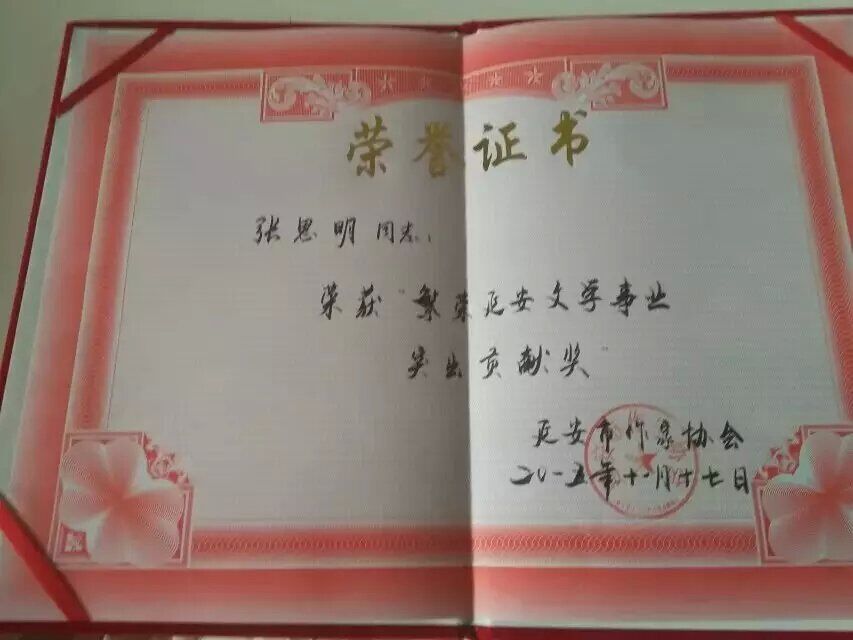 荣誉证书
张思明同志：
荣获"繁荣延安文学事业
突出贡献奖"
延安市作家协会
二〇一五年十一月十七日